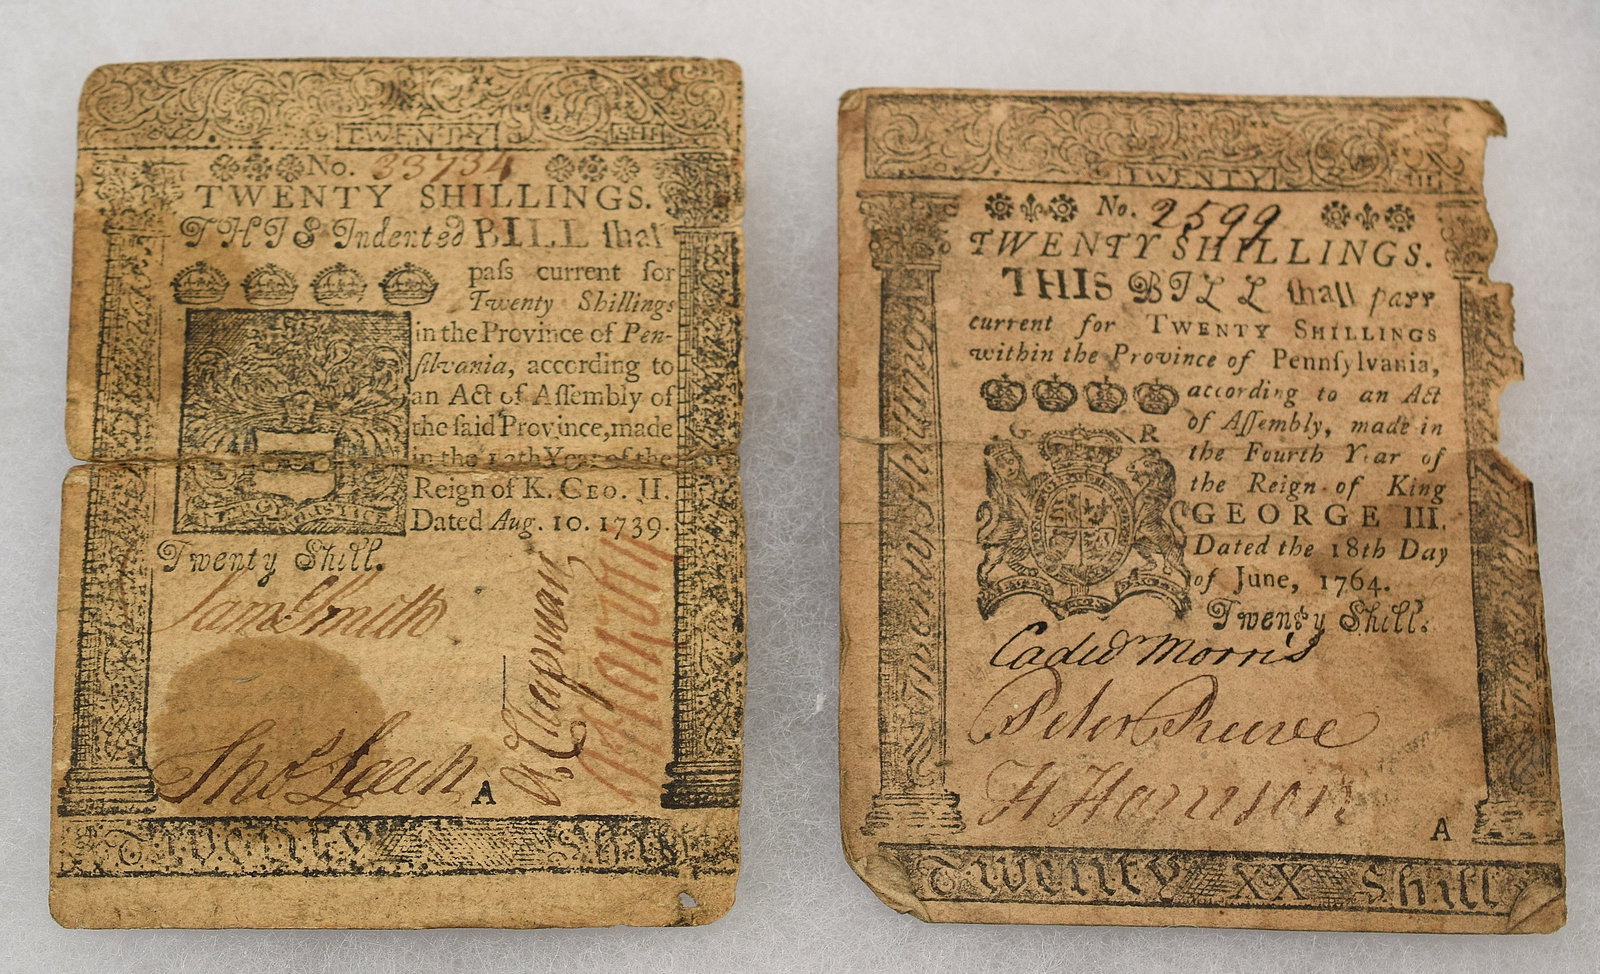 TWENTY SHIL
No. 33734
TWENTY SHILLINGS.
THIS Indented BILL ſhal
paſs current for
Twenty Shillings
in the Province of Pen-
ſilvania, according to
an Act of Aſſembly of
the ſaid Province, made
in the 12th Year of the
Reign of K. GEO. II.
Dated Aug. 10. 1739.
Twenty Shill.
Saml Smith
Thos Leech
A
Twenty Shill
TWENTY
No. 2599
TWENTY SHILLINGS.
THIS BILL ſhall paſs
current for TWENTY SHILLINGS
within the Province of Pennſylvania,
according to an Act
of Aſſembly, made in
the Fourth Year of
the Reign of King
GEORGE III.
Dated the 18th Day
of June, 1764.
G R
Twenty Shill.
Twenty Shillings
Cadwr Morris
Peter Reeve
H Harrison
A
Twenty XX Shill